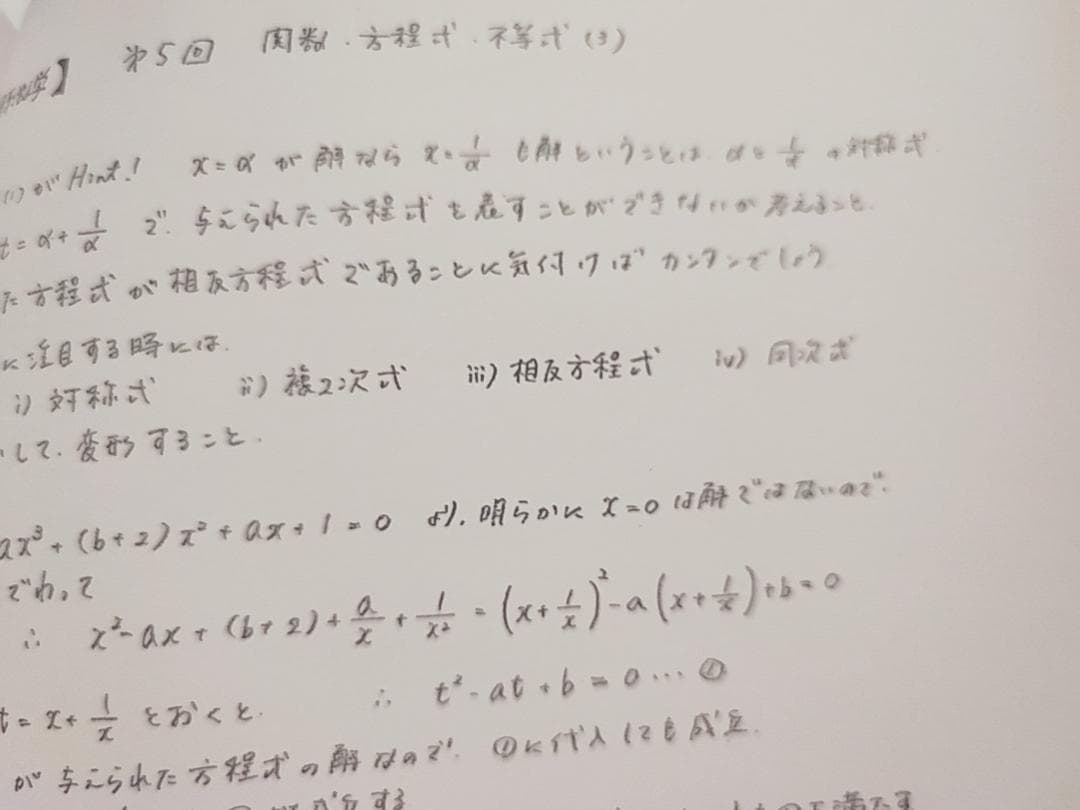 第5回 関数・方程式・不等式(3)
数学】
(1)がHint! x=αが解ならx=1/αも解ということは、αと1/αの対称式
t=α+1/αで、与えられた方程式を表すことができないか考えること。
た方程式が相反方程式であることに気付けばカンタンでしょう
に注目する時には、
i) 対称式 ii) 複2次式 iii) 相反方程式 iv) 同次式
して、変形すること。
ax³+(b+2)x²+ax+1=0 より、明らかにx=0は解ではないので、
でわって
∴ x²-ax+(b+2)+a/x+1/x²=(x+1/x)²-a(x+1/x)+b=0
t=x+1/xとおくと、 ∴ t²-at+b=0…①
が与えられた方程式の解なので、①に代入しても成立。
が成立する
満たす